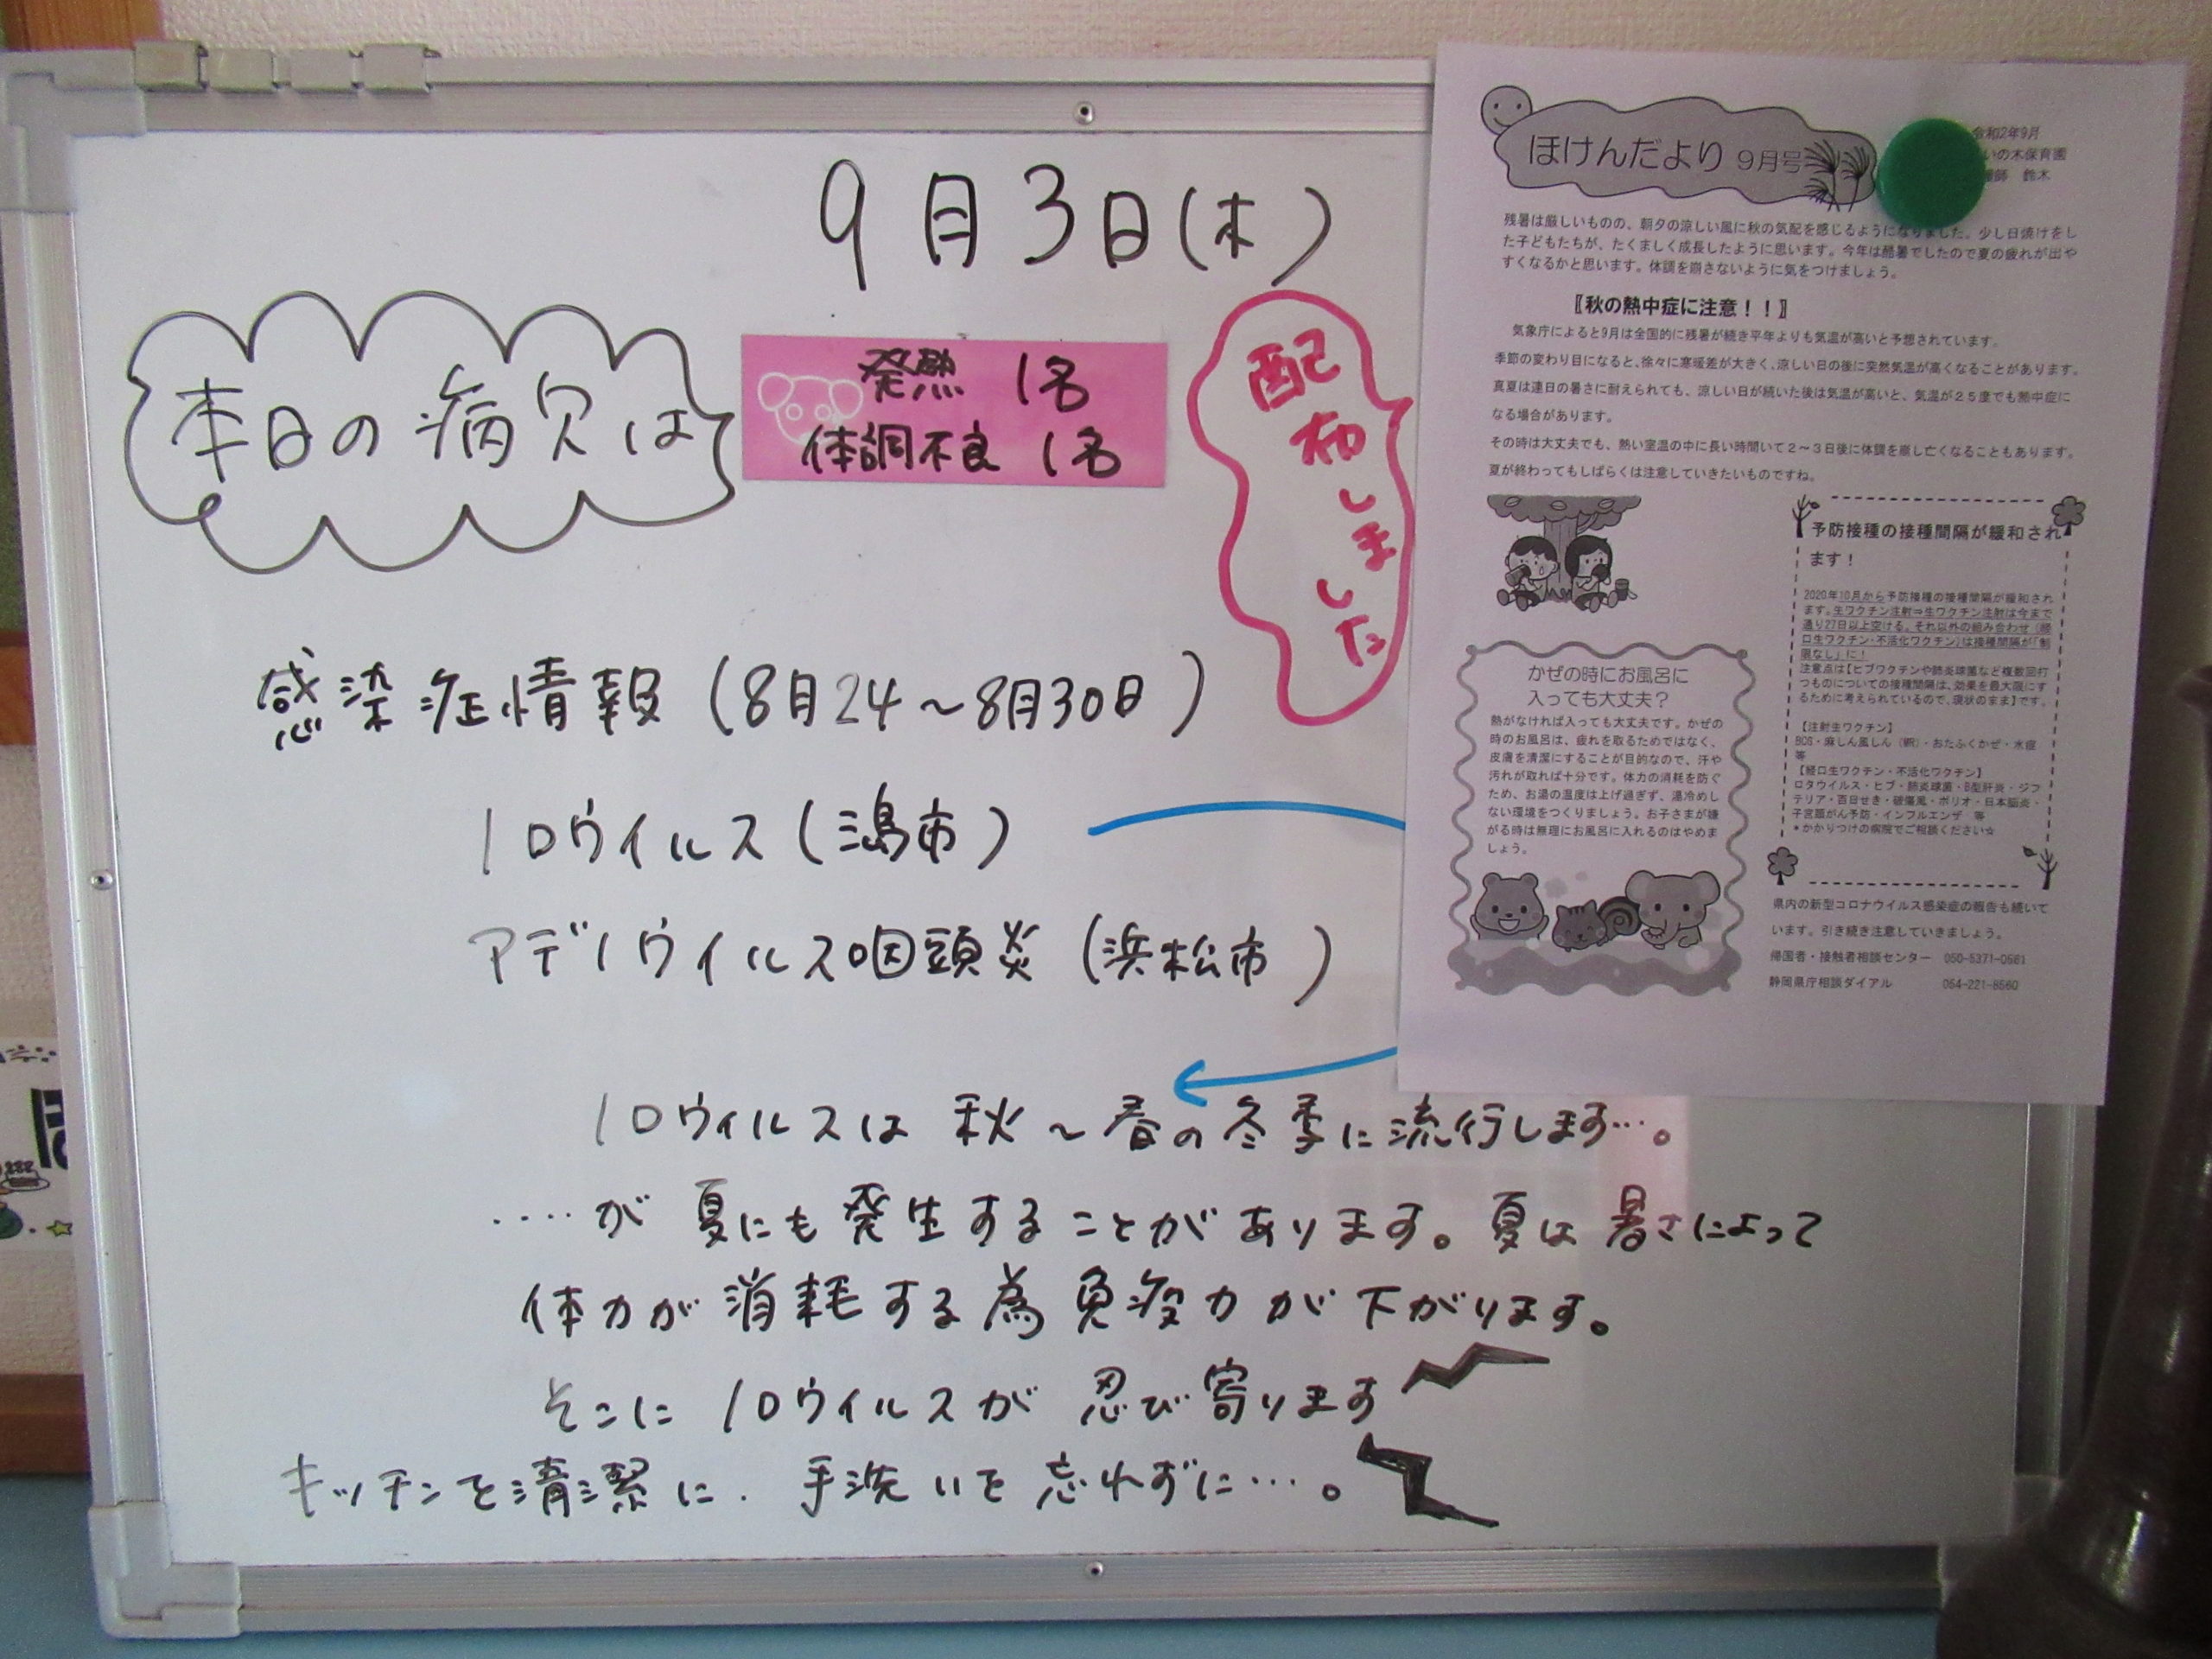 9月3日(木)
本日の病欠は
発熱 1名
体調不良 1名
配布しました
感染症情報(8月24~8月30日)
ノロウイルス(潟市)
アデノウイルス咽頭炎(浜松市)
ノロウィルスは 秋~春の冬季に流行します…。
‥‥が 夏にも発生することがあります。夏は暑さによって
体力が消耗する為免疫力が下がります。
そこにノロウィルスが忍び寄ります
キッチンを清潔に. 手洗いを忘れずに…。
ほけんだより 9月号
令和2年9月
いの木保育園
師 鈴木
残暑は厳しいものの、朝夕の涼しい風に秋の気配を感じるようになりました。少し日焼けをし
た子どもたちが、たくましく成長したように思います。今年は酷暑でしたので夏の疲れが出や
すくなるかと思います。体調を崩さないように気をつけましょう。
〖秋の熱中症に注意!!〗
気象庁によると9月は全国的に残暑が続き平年よりも気温が高いと予想されています。
季節の変わり目になると、徐々に寒暖差が大きく、涼しい日の後に突然気温が高くなることがあります。
真夏は連日の暑さに耐えられても、涼しい日が続いた後は気温が高いと、気温が25度でも熱中症に
なる場合があります。
その時は大丈夫でも、熱い室温の中に長い時間いて2~3日後に体調を崩し亡くなることもあります。
夏が終わってもしばらくは注意していきたいものですね。
かぜの時にお風呂に
入っても大丈夫?
熱がなければ入っても大丈夫です。かぜの
時のお風呂は、疲れを取るためではなく、
皮膚を清潔にすることが目的なので、汗や
汚れが取れば十分です。体力の消耗を防ぐ
ため、お湯の温度は上げ過ぎず、湯冷めし
ない環境をつくりましょう。お子さまが嫌
がる時は無理にお風呂に入れるのはやめま
しょう。
予防接種の接種間隔が緩和され
ます!
2020年10月から予防接種の接種間隔が緩和され
ます。生ワクチン注射⇒生ワクチン注射は今まで
通り27日以上空ける。それ以外の組み合わせ(経
口生ワクチン・不活化ワクチン)は接種間隔が「制
限なし」に!
注意点は【ヒブワクチンや肺炎球菌など複数回打
つものについての接種間隔は、効果を最大限にす
るために考えられているので、現状のまま】です。
【注射生ワクチン】
BCG・麻しん風しん(MR)・おたふくかぜ・水痘
等
【経口生ワクチン・不活化ワクチン】
ロタウイルス・ヒブ・肺炎球菌・B型肝炎・ジフ
テリア・百日せき・破傷風・ポリオ・日本脳炎・
子宮頸がん予防・インフルエンザ 等
*かかりつけの病院でご相談ください☆
県内の新型コロナウイルス感染症の報告も続いて
います。引き続き注意していきましょう。
帰国者・接触者相談センター 050-5371-0561
静岡県庁相談ダイアル 054-221-8560